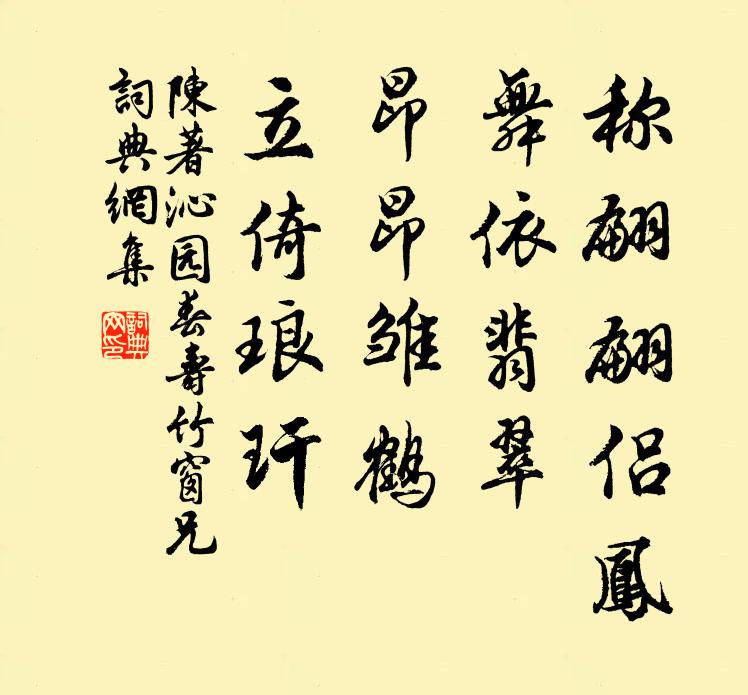 称翩翩侣鳳
舞依翡翠
昂昂雏鶴
立倚琅玕
陳著沁园春壽竹窗兄
詞典網集
詞典网印